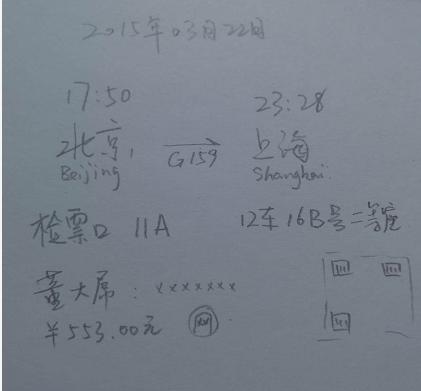 2015年03月22日
17:50 23:28
北京 G159 上海
Beijing Shanghai
检票口 11A 12车16B号 二等座
董大屌: xxxxxxx
￥553.00元 网